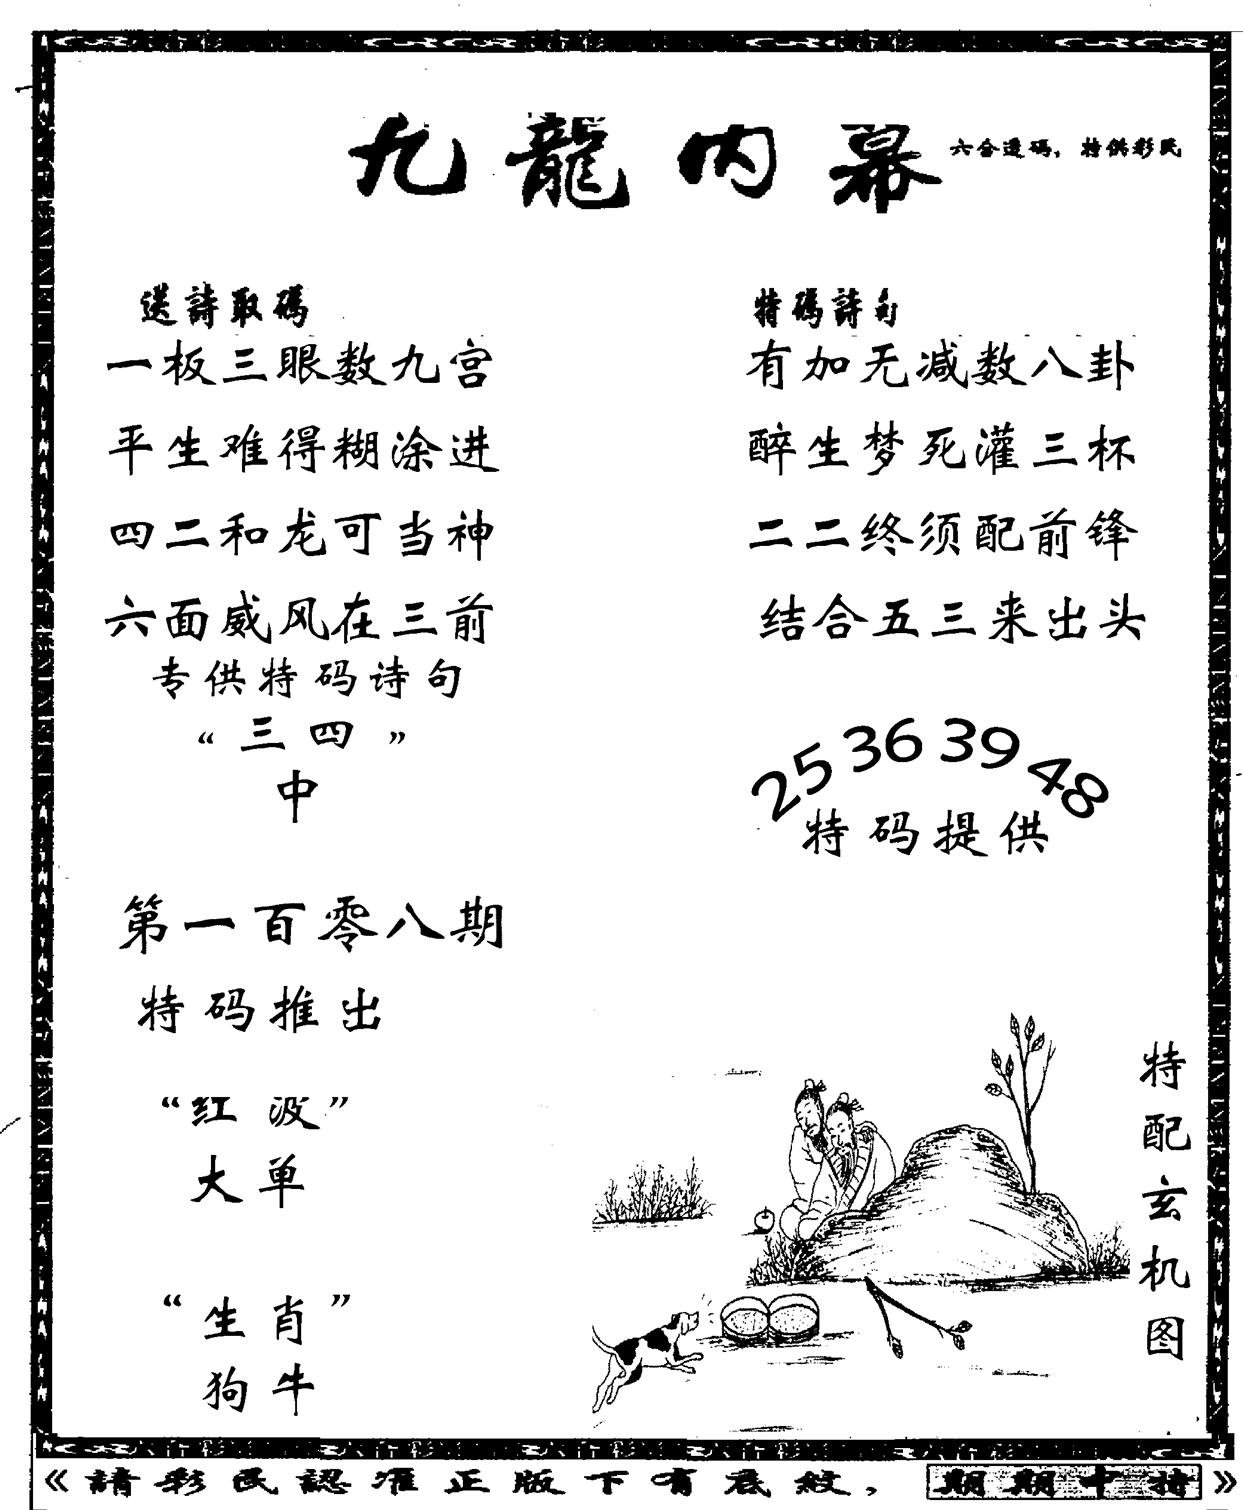 九龍内幕
六合透码，特供彩民
送詩取碼
一板三眼数九宫
平生难得糊涂进
四二和龙可当神
六面威风在三前
专供特码诗句
“三四”
中
特碼詩句
有加无减数八卦
醉生梦死灌三杯
二二终须配前锋
结合五三来出头
25 36 39 48
特码提供
第一百零八期
特码推出
“红波”
大单
“生肖”
狗牛
特配玄机图
《請彩民認准正版下有底紋，期期中特》